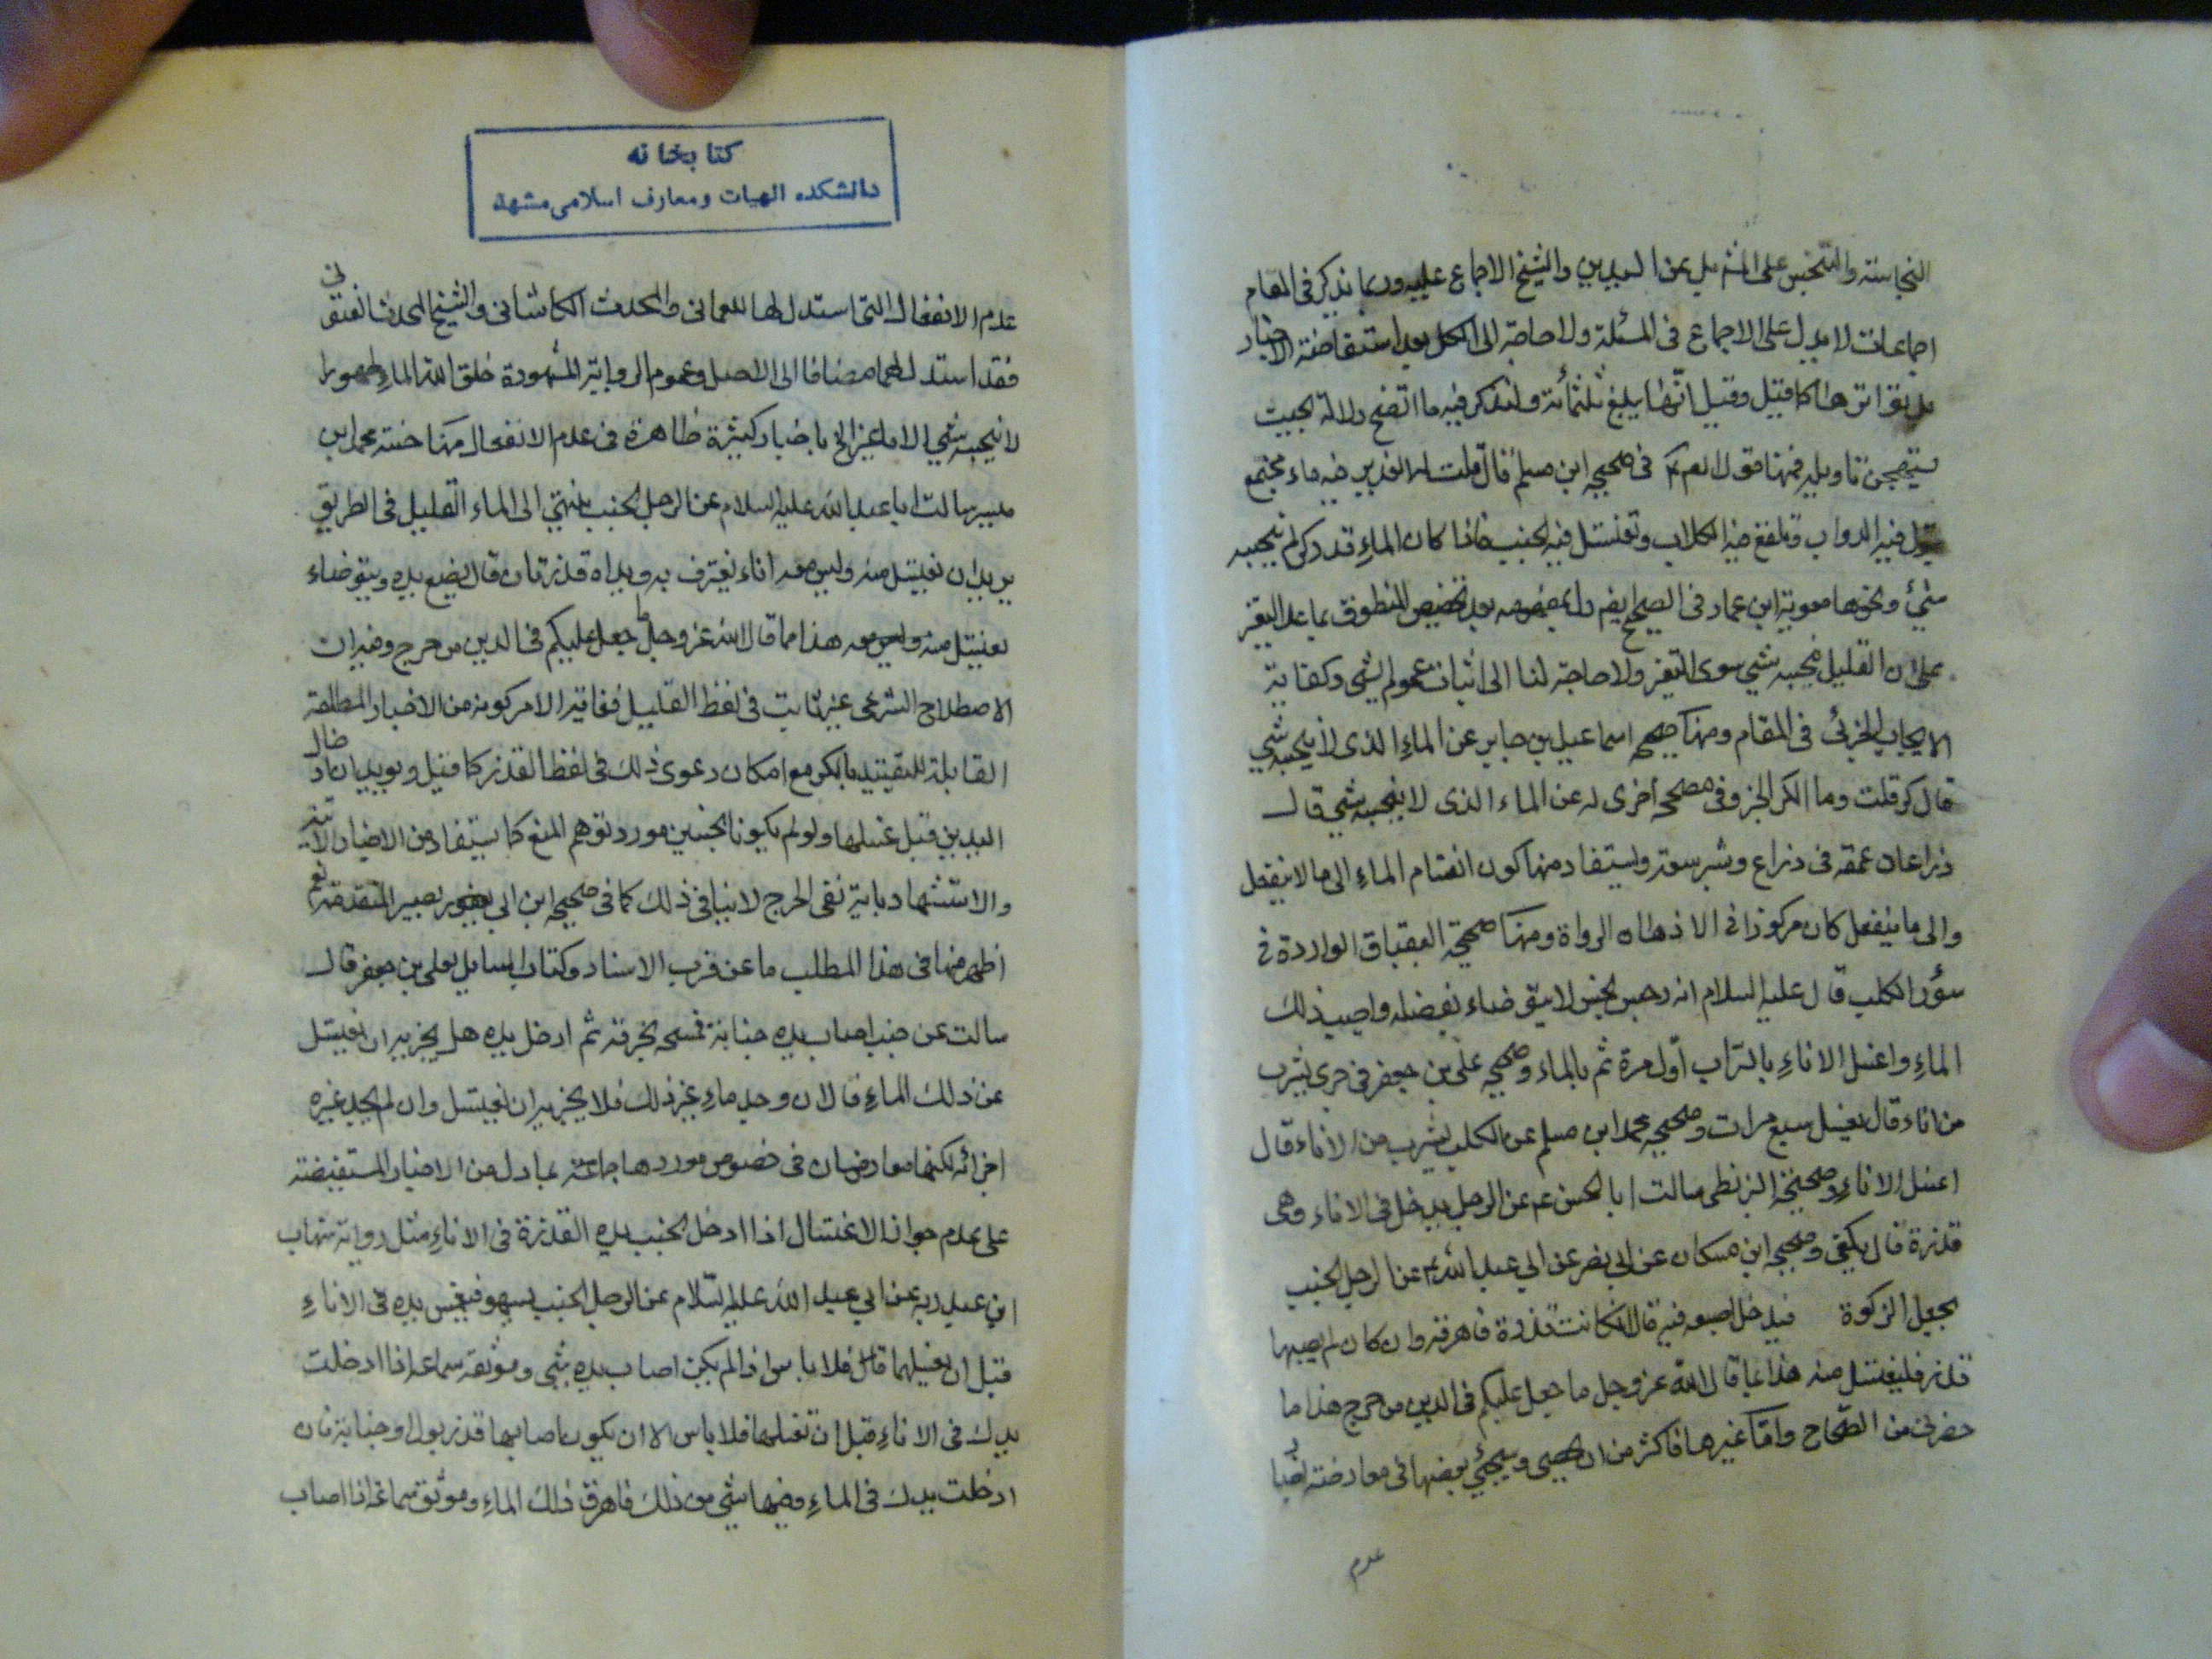 النجاسة والتنجس على المشهور بل عن السيدين والشيخ الاجماع عليه وربما يذكر فى المقام
اجماعات لا يدل على الاجماع فى المسئلة ولا حاجة الى الكل بعد استفاضة الاخبار
بل تواترها كما قيل وقيل انّها يبلغ ثلثمأئة ولنذكر فيه ما اتضح دلالة بحيث
يستهجن تاويله فمنها قوله فى صحيحه ابن مسلم قال قلت له الغدير فيه ماء مجتمع
تبول فيه الدواب وتلغ فيه الكلاب وتغتسل فيه الجنب فاذا كان الماء قدر كر لم ينجسه
شئ ونحوها معوية ابن عمار فى الصحيح ايضا دل بمفهومه بعد تخصيص المنطوق بما عدا التغير
على ان القليل ينجسه شئ سوى التغير ولا حاجة لنا الى اثبات عموم الشئ وكفاية
الايجاب الجزئى فى المقام ومنها صحيحه اسماعيل بن جابر عن الماء الذى لا ينجسه شئ
قال كر قلت وما الكر الخبر وفى مصححه أخرى له عن الماء الذى لا ينجسه شئ قال
ذراعان عمقه فى ذراع وشبر سعته ويستفاد منها كون انقسام الماء الى ما لا ينفعل
والى ما ينفعل كان مركوزا فى الاذهان الرواة ومنها صحيحة البقباق الواردة فى
سؤر الكلب قال عليه السلام انه رجس نجس لا يتوضاء بفضله واصبب ذلك
الماء واغسل الاناء بالتراب أوّل مرة ثم بالماء وصحيحه على بن جعفر فى خنزير شرب
من اناء قال يغسل سبع مرات وصحيحه محمد ابن مسلم عن الكلب يشرب من الاناء قال
اغسل الاناء وصحيحة البزنطى سالت ابا الحسن عم عن الرجل يدخل فى الاناء وهى
قذرة قال يكفئ وصحيحه ابن مسكان عن ابى بصير عن ابى عبد الله عن الرجل الجنب
يجعل الركوة فيدخل اصبعه فيه قال ان كانت قذرة فاهرقه وان كان لم يصبها
قذر فليغتسل منه هذا مما قال الله عز وجل ما جعل عليكم فى الدين من حرج هذا ما
حضرنى من الصّحاح وامّا غيرها فاكثر من ان يحصى وسيجئ بعضها فى معارضة اخبار
عدم
كتابخانه
دانشكده الهيات ومعارف اسلامى مشهد
عدم الانفعال التى استدل لها للعمانى والمحدث الكاشانى والشيخ المحدث الفتونى
فقد استدل لهما مضافا الى الاصل وعموم الرواية المشهورة خلق الله الماء طهورا
لا ينجسه شئ الا ما غير الخ باخبار كثيرة ظاهرة فى عدم الانفعال منها حسنة محمد ابن
ميسر سالت ابا عبد الله عليه السلام عن الرجل الجنب ينتهى الى الماء القليل فى الطريق
يريد ان يغتسل منه وليس معه اناء يغترف به ويداه قذرتان قال يضع يده ويتوضاء
يغتسل منه وليس معه هذا مما قال الله عز وجل ما جعل عليكم فى الدين من حرج وفيه ان
الاصطلاح الشرعى غير ثابت فى لفظ القليل فغاية الامر كونه من الاخبار المطلقة
القابلة للتقييد بالكر مع امكان دعوى ذلك فى لفظ القذر كما قيل ويؤيد ان ادخال
اليدين قبل غسلها ولو لم يكونا نجسين مورد توهم المنع كما يستفاد من الاخبار الاتية
والاستشهاد باية نفى الحرج لا ينافى ذلك كما فى صحيحه ابن ابى بصير المتقدمة نعم
اظهر منها فى هذا المطلب ما عن قرب الاسناد وكتاب المسايل لعلى بن جعفر قال
سالت عن جنب اصاب يده جنابة فمسحه بخرقة ثم ادخل يده هل يجزيه ان يغتسل
عن ذلك الماء قال ان وجد ماء غير ذلك فلا يجزيه ان يغتسل وان لم يجد غيره
اجزائه لكنها معارضان فى خصوص موردها بما دل من الاخبار المستفيضة
على عدم جواز الاغتسال اذا ادخل الجنب يده القذرة فى الاناء مثل رواية شهاب
ابن عبد ربه عن ابى عبد الله عليه السّلام عن الرجل الجنب يسهو فيغمس يده فى الاناء
قبل ان يغسلهما قال فلا باس اذا لم يكن اصاب يده شئ وموثقه سماعه اذا ادخلت
يدك فى الاناء قبل ان تغسلها فلا باس الا ان يكون اصابها قذر بول او جنابة فان
ادخلت يدك فى الماء وفيها شئ من ذلك فاهرق ذلك الماء وموثّق سماعه اذا اصاب